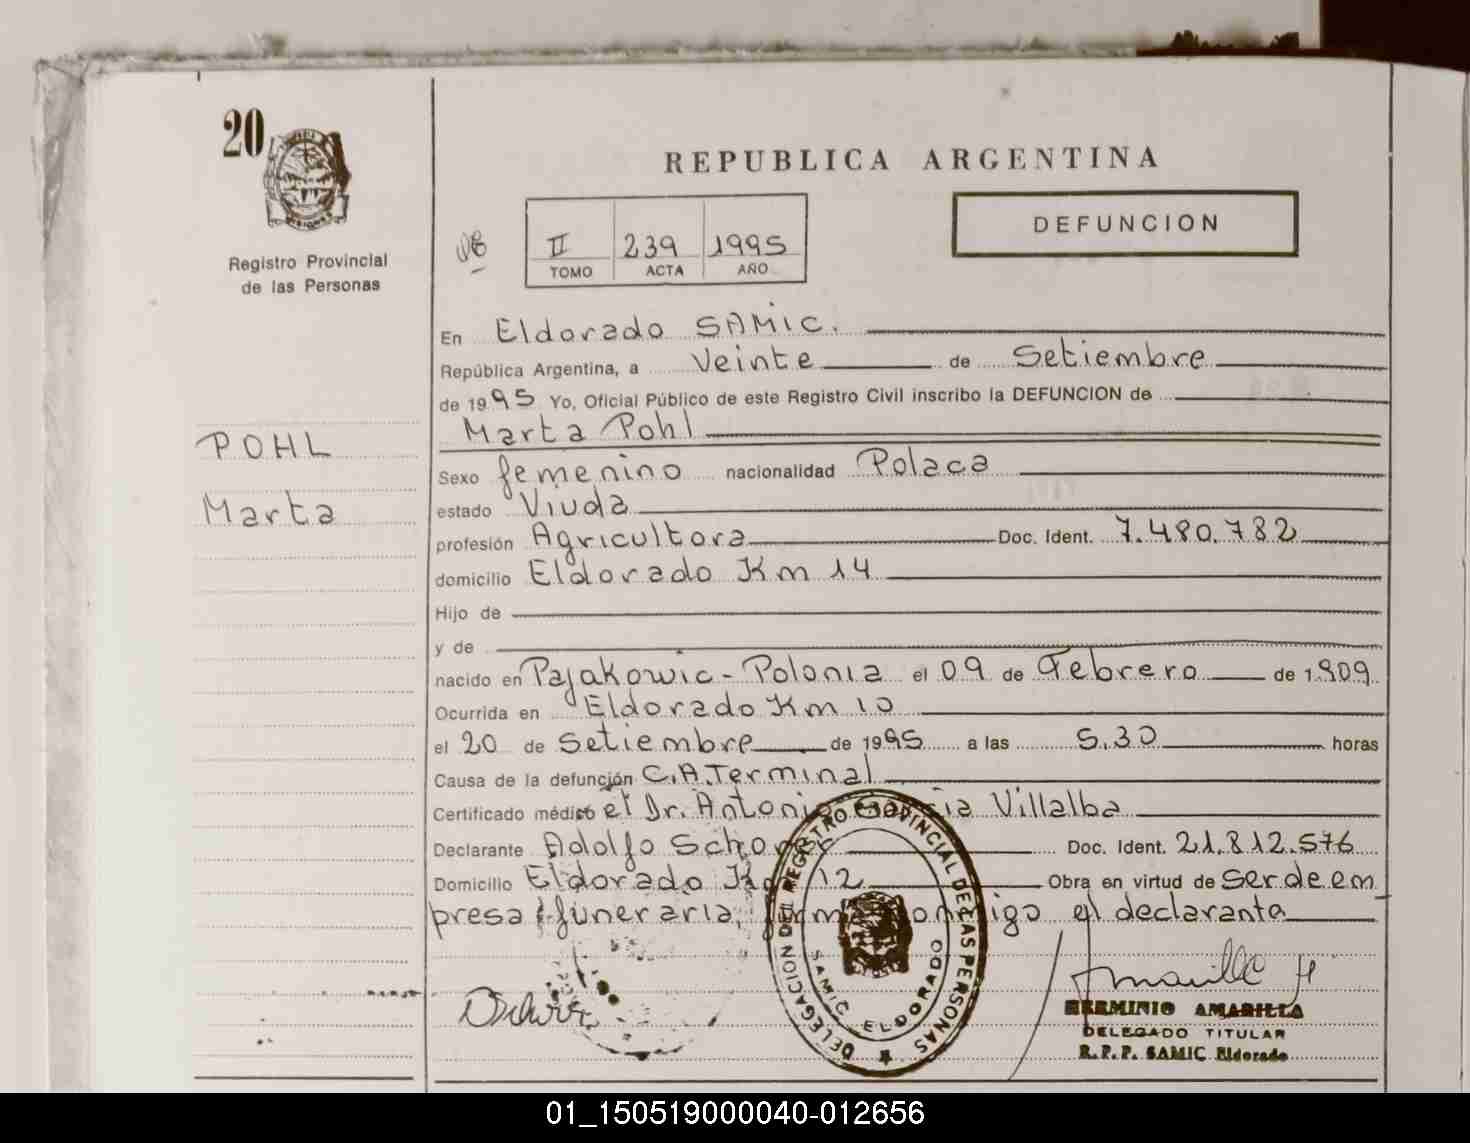 20
Registro Provincial
de las Personas
REPUBLICA ARGENTINA
DEFUNCION
II 239 1995
TOMO ACTA AÑO
En Eldorado SAMIC.
República Argentina, a Veinte de Setiembre
de 1995 Yo, Oficial Público de este Registro Civil inscribo la DEFUNCION de
Marta Pohl
POHL
Marta
Sexo femenino nacionalidad Polaca
estado Viuda
profesión Agricultora Doc. Ident. 7.480.782
domicilio Eldorado Km 14
Hijo de
y de
nacido en Pajakowic - Polonia el 09 de Febrero de 1.909
Ocurrida en Eldorado Km 10
el 20 de Setiembre de 1995 a las 5.30 horas
Causa de la defunción C.A. Terminal
Certificado médico el Dr. Antonio Villalba
Declarante Adolfo Doc. Ident. 21.812.576
Domicilio Eldorado Km 12 Obra en virtud de ser de em
presa funeraria, firma conmigo el declaranta
DELEGACION DEL REGISTRO PROVINCIAL DE LAS PERSONAS
SAMIC ELDORADO
HERMINIO AMARILLA
DELEGADO TITULAR
R.P.P. SAMIC Eldorado
01_150519000040-012656